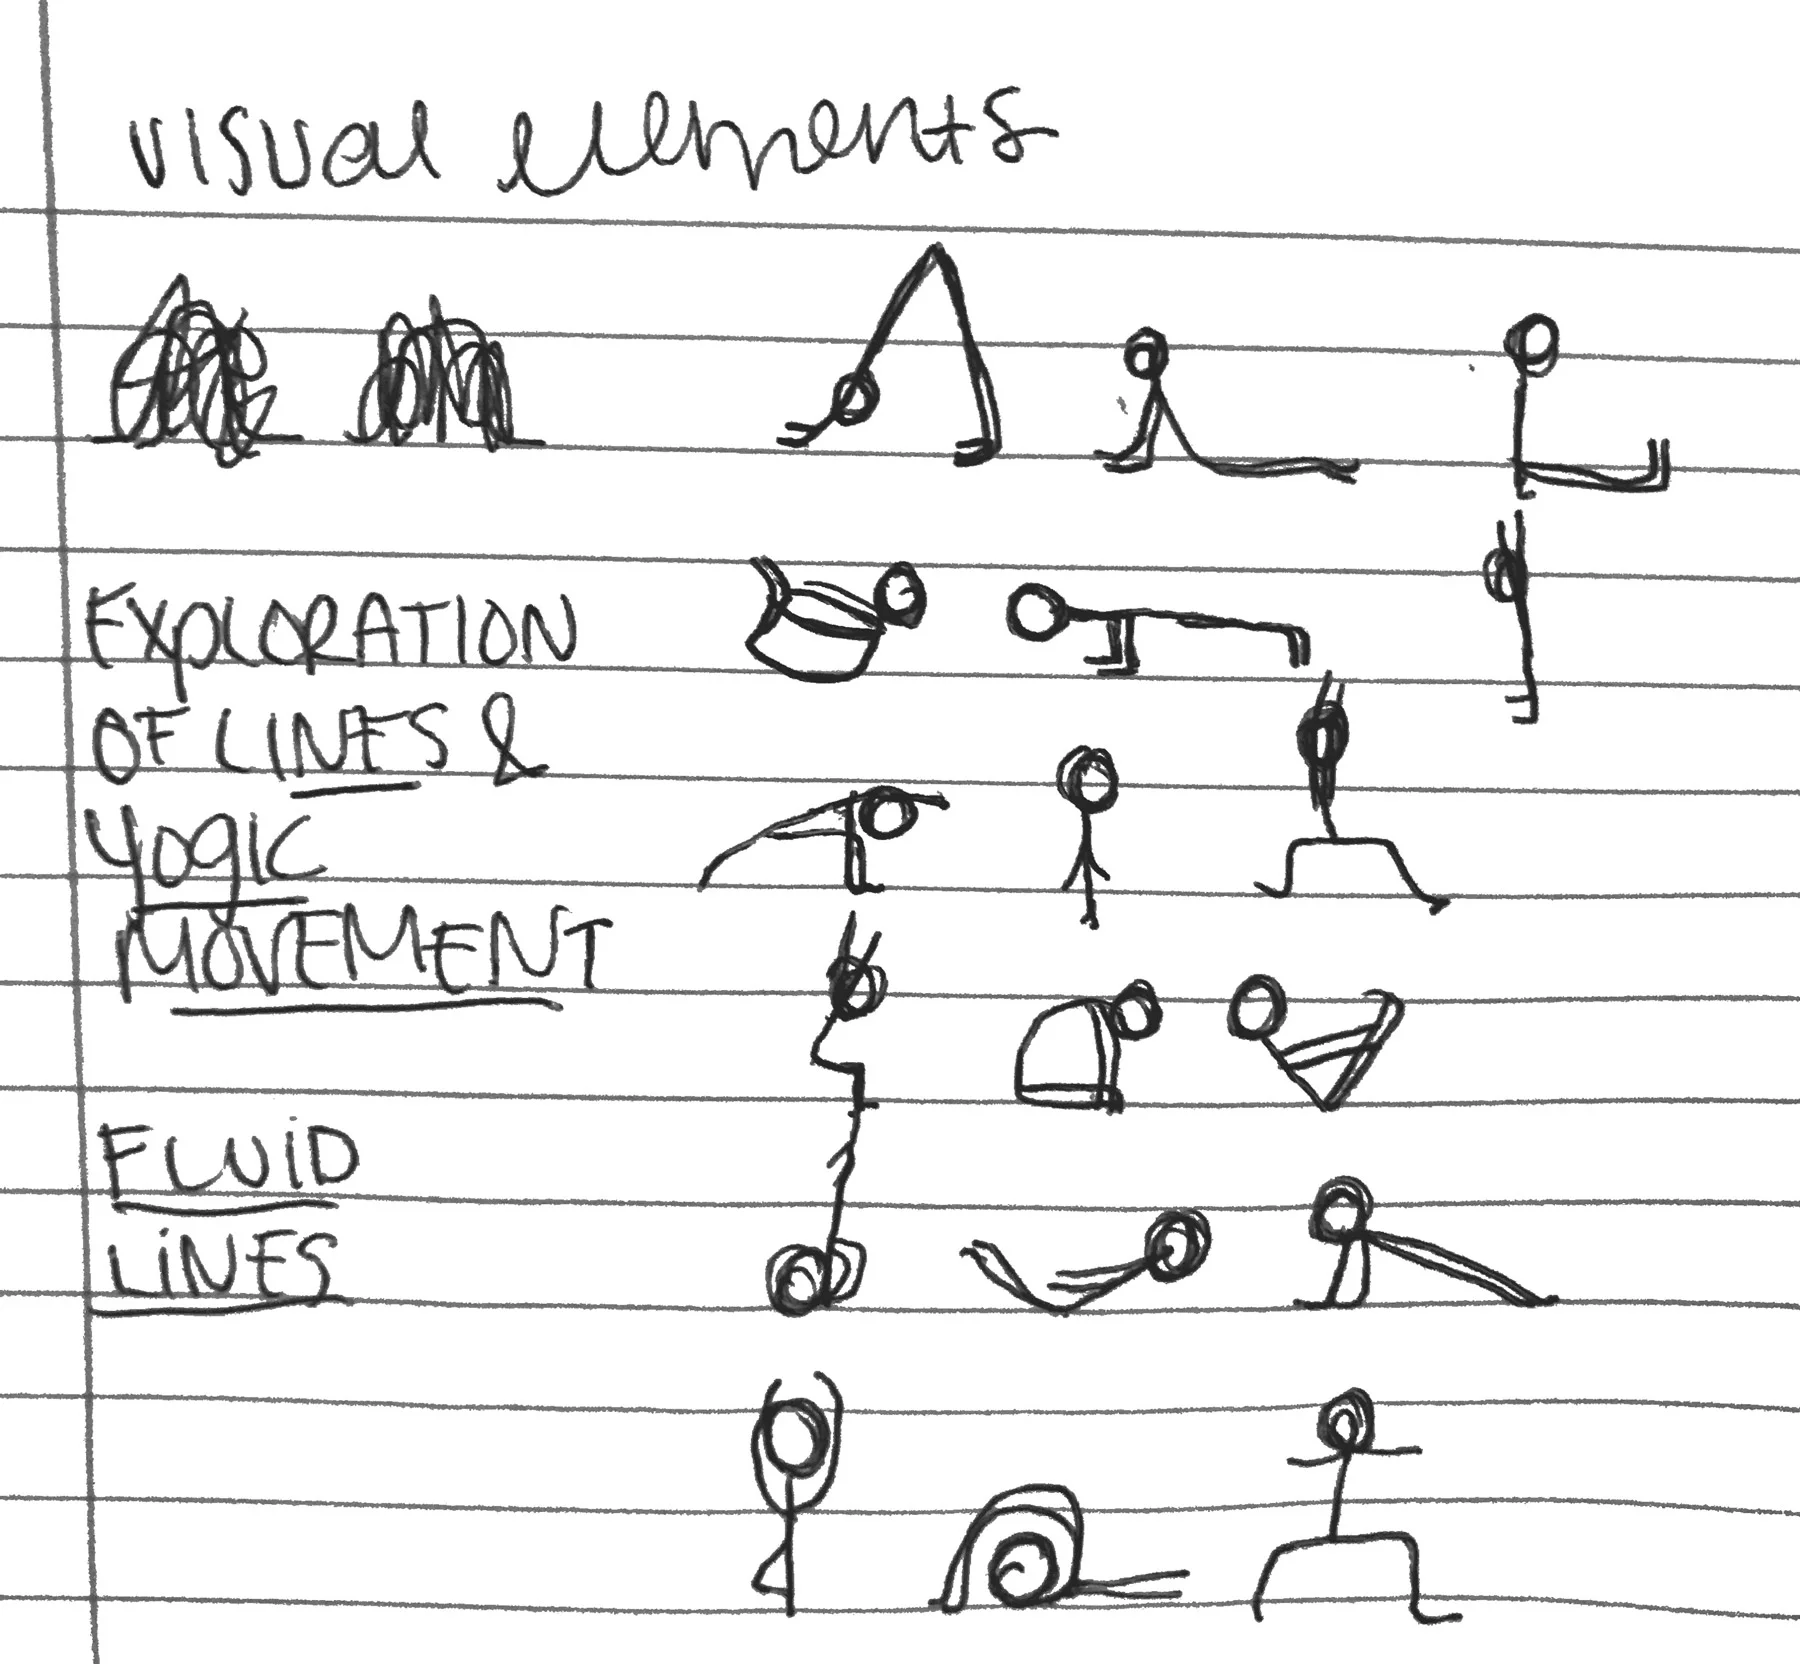 visual elements
EXPLORATION
OF LINES &
YOGIC
MOVEMENT
FLUID
LINES